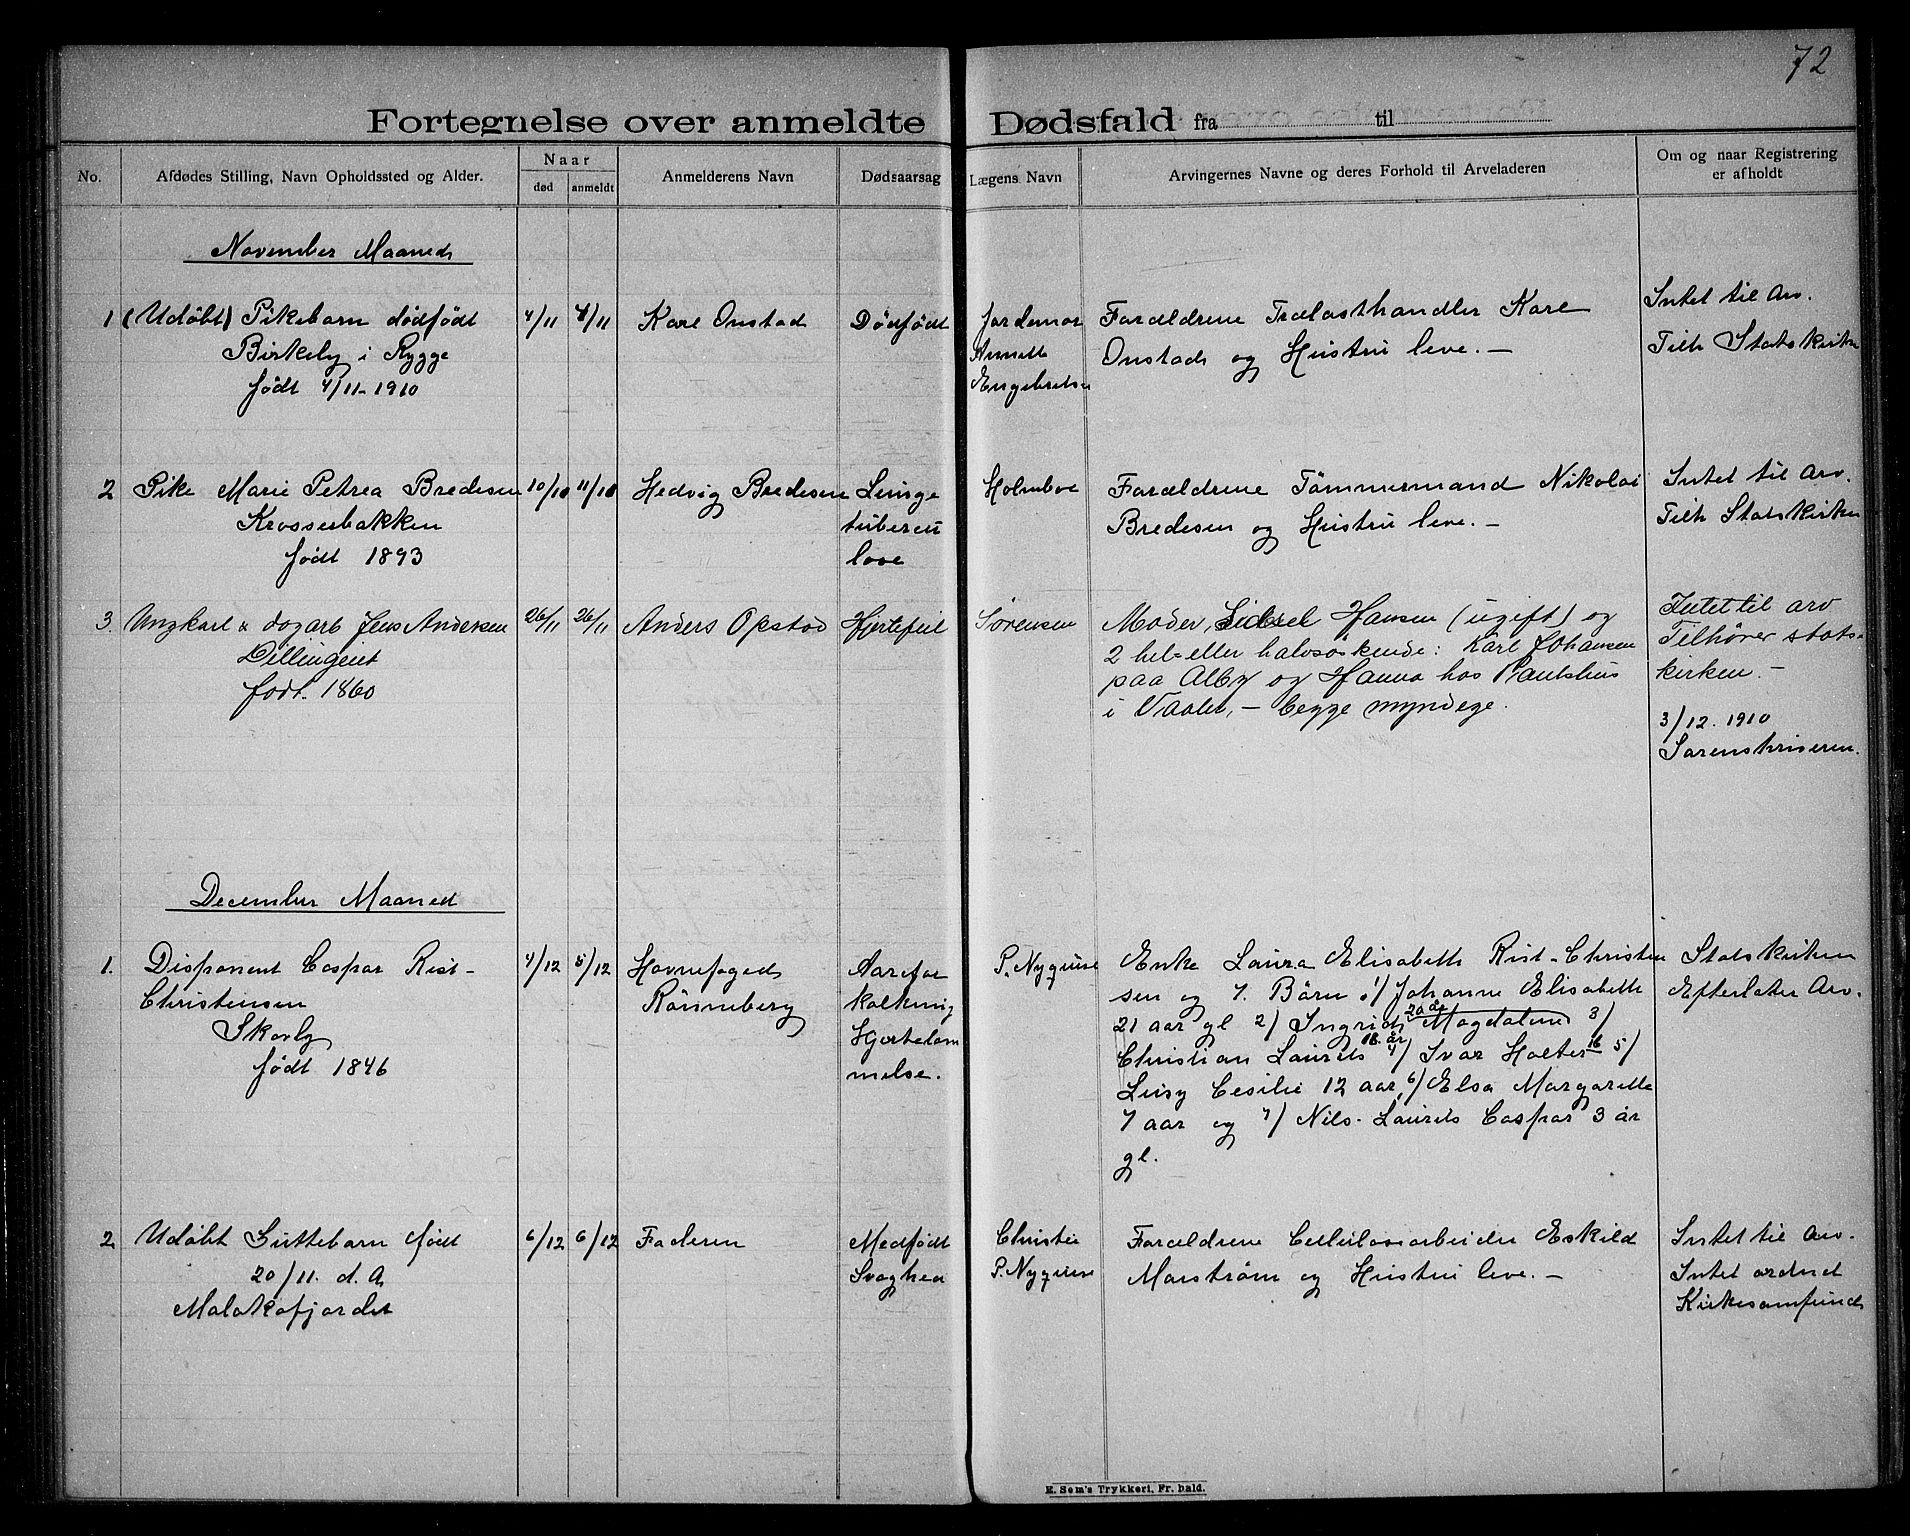 72
Fortegnelse over anmeldte Dødsfald fra til
No.
Afdødes Stilling, Navn Opholdssted og Alder.
Naar
død
anmeldt
Anmelderens Navn
Dødsaarsag
Lægens Navn
Arvingernes Navne og deres Forhold til Arveladeren
Om og naar Registrering
er afholdt
November Maaned
1 (Udøbt) Pikebarn dødfødt
Birkely i Rygge
født 4/11-1910
4/11
4/11
Karl Onstad
Dødfødt
Jordemor
Annette
Engebretsen
Forældrene Trælasthandler Karl
Onstad og Hustru leve. —
Intet til Arv.
Tilh Statskirken
2 Pike Marie Petrea Bredesen
Krosserbakken
født 1893
10/10
11/10
Hedvig Bredesen
Lunge
tubercu
lose
Holmboe
Forældrene Tømmermand Nikolai
Bredesen og Hustru leve. —
Intet til Arv.
Tilh Statskirken
3. Ungkarl & dagarb Jens Andersen
Dillingeiet
født. 1860
26/11
26/11
Anders Opstad
Hjertefeil
Sørensen
Moder, Sidsel Hansen (ugift) og
2 hel- eller halvsøskende: Karl Johansen
paa Alby og Hanna hos Paulshus
i Vaaler, — begge myndige.
Intet til arv
Tilhører stats-
kirken. —
3/12. 1910
Sorenskriveren.
December Maaned
1. Disponent Caspar Rist-
Christensen
Skarby
født 1846
4/12
5/12
Havnefoged
Rønneberg
Aarefor
kalkning
Hjertelam
melse.
P. Nyquise
Enke Laura Elisabeth Rist-Christen
sen og 7. Børn 1/ Johanne Elisabeth
21 aar gl 2) Ingrid Magdalene 20 år 3)
Christian Laurits 18. år 4) Ivar Holter 16 5)
Lusy Cesilie 12 aar, 6) Elsa Margarethe
7 aar og 7) Nils-Laurits Caspar 3 år
gl.
Statskirken
Efterlater Arv.
2 Udøbt Guttebarn født
20/11. d. A
Malakofjordet
6/12
6/12
Faderen
Medfødt
Svaghed
Christie
P. Nyquise
Forældrene Cellulosearbeider Eskild
Marstrøm og Hustru leve. —
Intet til Arv.
Intet ordnet
Kirkesamfund
E. Sem's Trykkeri, Fr. hald.